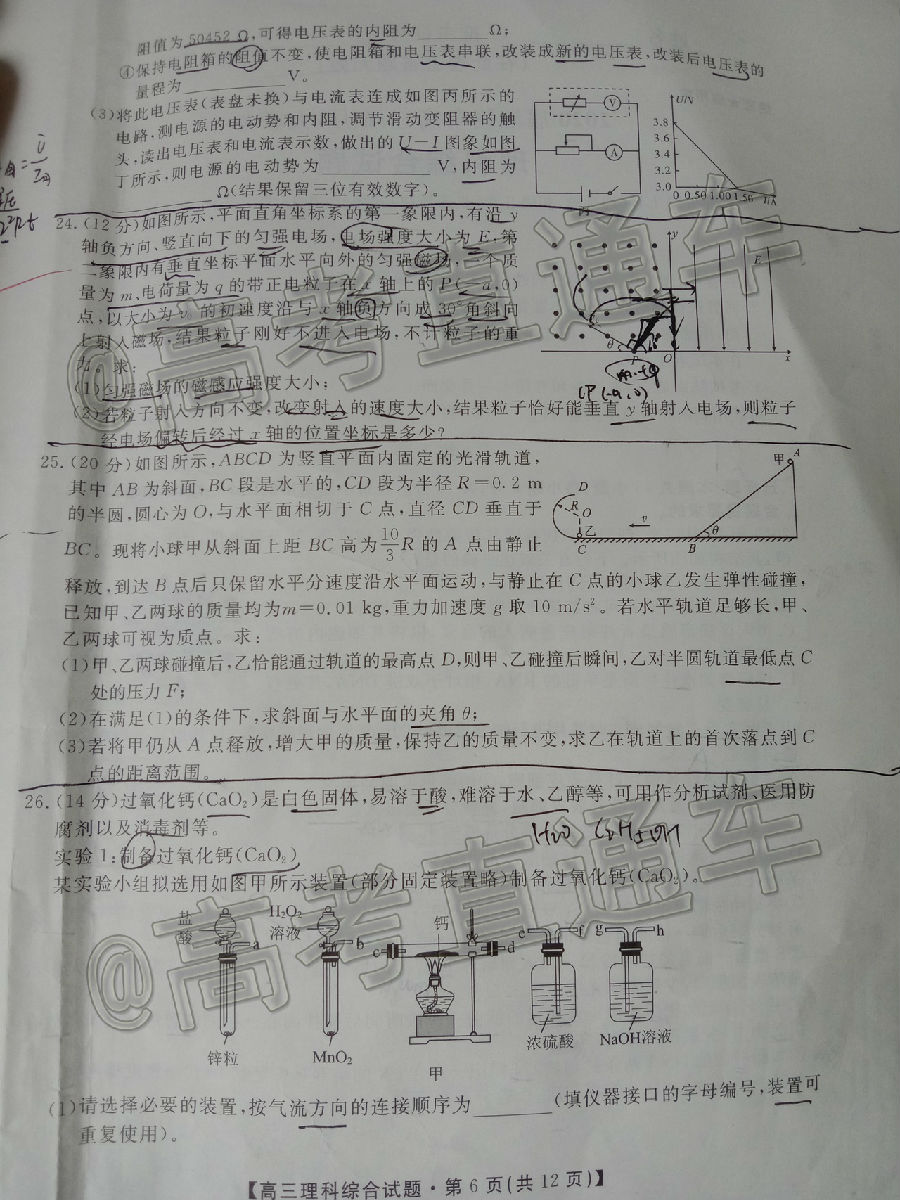 阻值为50452 Ω,可得电压表的内阻为________Ω;
④保持电阻箱的阻值不变,使电阻箱和电压表串联,改装成新的电压表,改装后电压表的
量程为________V。
(3)将此电压表(表盘未换)与电流表连成如图丙所示的
电路,测电源的电动势和内阻,调节滑动变阻器的触
头,读出电压表和电流表示数,做出的U—I图象如图
丁所示,则电源的电动势为________V,内阻为
________Ω(结果保留三位有效数字)。
V
A
U/V
3.8
3.6
3.4
3.2
3.0
0 0.50 1.00 1.50 I/A
24.(12分)如图所示,平面直角坐标系的第一象限内,有沿y
轴负方向、竖直向下的匀强电场,电场强度大小为E,第
二象限内有垂直坐标平面水平向外的匀强磁场,一个质
量为m、电荷量为q的带正电粒子在x轴上的P(-a,0)
点,以大小为v₀的初速度沿与x轴负方向成30°角斜向
上射入磁场,结果粒子刚好不进入电场,不计粒子的重
力。求:
(1)匀强磁场的磁感应强度大小;
(2)若粒子射入方向不变,改变射入的速度大小,结果粒子恰好能垂直y轴射入电场,则粒子
经电场偏转后经过x轴的位置坐标是多少?
y
E
θ
P
O
x
m.+q
(P(-a,0)
25.(20分)如图所示,ABCD为竖直平面内固定的光滑轨道,
其中AB为斜面,BC段是水平的,CD段为半径R=0.2 m
的半圆,圆心为O,与水平面相切于C点,直径CD垂直于
BC。现将小球甲从斜面上距BC高为10/3 R的A点由静止
释放,到达B点后只保留水平分速度沿水平面运动,与静止在C点的小球乙发生弹性碰撞,
已知甲、乙两球的质量均为m=0.01 kg,重力加速度g取10 m/s²。若水平轨道足够长,甲、
乙两球可视为质点。求:
(1)甲、乙两球碰撞后,乙恰能通过轨道的最高点D,则甲、乙碰撞后瞬间,乙对半圆轨道最低点C
处的压力F;
(2)在满足(1)的条件下,求斜面与水平面的夹角θ;
(3)若将甲仍从A点释放,增大甲的质量,保持乙的质量不变,求乙在轨道上的首次落点到C
点的距离范围。
甲 A
D
R O
乙
C
v
B
θ
26.(14分)过氧化钙(CaO₂)是白色固体,易溶于酸,难溶于水、乙醇等,可用作分析试剂、医用防
腐剂以及消毒剂等。
H₂O C₂H₅OH
实验1:制备过氧化钙(CaO₂)
某实验小组拟选用如图甲所示装置(部分固定装置略)制备过氧化钙(CaO₂)。
盐酸
a
锌粒
H₂O₂溶液
b
MnO₂
c
钙
d
e f
浓硫酸
g h
NaOH溶液
甲
(1)请选择必要的装置,按气流方向的连接顺序为________(填仪器接口的字母编号,装置可
重复使用)。
【高三理科综合试题·第6页(共12页)】
@高考直通车
@高考直通车